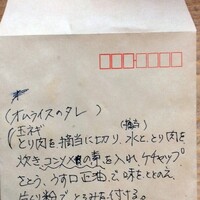 (オムライスのタレ)
玉ネギ (適当)
とり肉を適当に切り、水と、とり肉を
炊き、コンソメの素を入れ、ケチャップ
をとう、うす口正油で味をととのえ、
片くり粉でとろみを付ける。